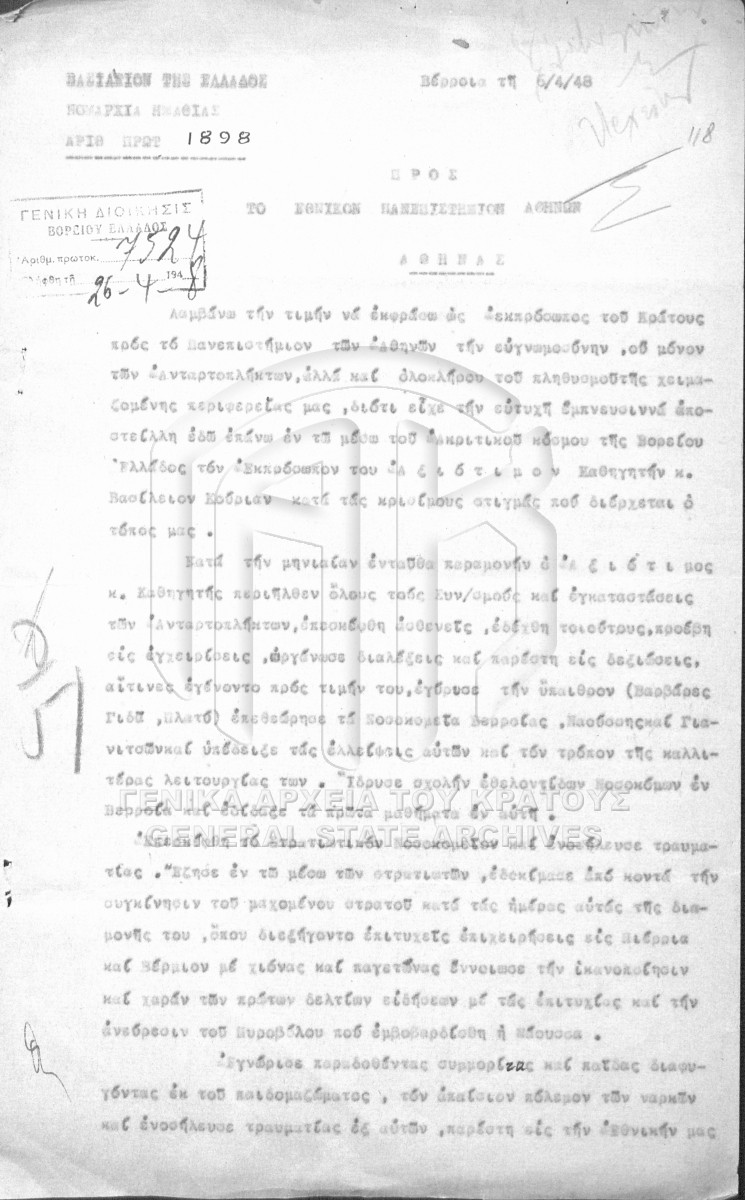 ΒΑΣΙΛΕΙΟΝ ΤΗΣ ΕΛΛΑΔΟΣ
Βέρροια τῆ 6/4/48
ΝΟΜΑΡΧΙΑ ΗΜΑΘΙΑΣ
ΑΡΙΘ ΠΡΩΤ 1898
118
ΠΡΟΣ
ΤΟ ΕΘΝΙΚΟΝ ΠΑΝΕΠΙΣΤΗΜΙΟΝ ΑΘΗΝΩΝ
ΑΘΗΝΑΣ
ΓΕΝΙΚΗ ΔΙΟΙΚΗΣΙΣ
ΒΟΡΕΙΟΥ ΕΛΛΑΔΟΣ
Ἀριθμ. πρωτοκ. 7524
26-4-1948
Λαμβάνω τήν τιμήν νά ἐκφράσω ὡς ἐκπρόσωπος τοῦ Κράτους
πρός τό Πανεπιστήμιον τῶν Ἀθηνῶν τήν εὐγνωμοσύνην ,οὐ μόνον
τῶν Ἀνταρτοπλήκτων,ἀλλά καί ὁλοκλήρου τοῦ πληθυσμοῦτῆς χειμα-
ζομένης περιφερείας μας ,διότι εἶχε τήν εὐτυχῆ ἔμπνευσιννά ἀπο-
στείλλη ἐδῶ ἐπάνω ἐν τῶ μέσω τοῦ Ἀκριτικοῦ κόσμου τῆς Βορείου
Ἑλλάδος τόν Ἐκπρόσωπον του Ἀ ξ ι ό τ ι μ ο ν Καθηγητήν κ.
Βασίλειον Κούριαν κατά τάς κρισίμους στιγμάς πού διέρχεται ὁ
τόπος μας .
Κατά τήν μηνιαίαν ἐνταῦθα παραμονήν ὁ Ἀ ξ ι ό τ ι μος
κ. Καθηγητής περιῆλθεν ὅλους τούς Συν/σμούς καί ἐγκαταστάσεις
τῶν Ἀνταρτοπλήκτων,ἐπεσκέφθη ἀσθενεῖς ,ἐδέχθη τοιούτους,προέβη
εἰς ἐγχειρίσεις ,ὠργάνωσε διαλέξεις καί παρέστη εἰς δεξιώσεις,
αἵτινες ἐγένοντο πρός τιμήν του,ἐγύρυσε τήν ὕπαιθρον (Βαρβάρες
Γιδᾶ ,Πλατύ) ἐπεθεώρησε τά Νοσοκομεῖα Βερροίας ,Ναούσηςκαί Για-
νιτσῶνκαί ὑπέδειξε τάς ἐλλείψεις αὐτῶν καί τόν τρόπον τῆς καλλι-
τέρας λειτουργίας των . Ἵδρυσε σχολήν ἐθελοντίδων Νοσοκόμων ἐν
Βερροίᾳ καί ἐδίδαξε τά πρῶτα μαθήματα ἐν αὐτῆ .
ΓΕΝΙΚΑ ΑΡΧΕΙΑ ΤΟΥ ΚΡΑΤΟΥΣ
GENERAL STATE ARCHIVES
Ἐπεσκέφθη τό Στρατιωτικόν Νοσοκομεῖον καί ἐνοσήλευσε τραυμα-
τίας . Ἔζησε ἐν τῶ μέσω τῶν στρατιωτῶν ,ἐδοκίμασε ἀπό κοντά τήν
συγκίνησιν τοῦ μαχομένου στρατοῦ κατά τάς ἡμέρας αὐτάς τῆς δια-
μονῆς του ,ὅπου διεξήγοντο ἐπιτυχεῖς ἐπιχειρήσεις εἰς Πιέρρια
καί Βέρμιον μέ χιόνας καί παγετῶνας ἔννοιωσε τήν ἱκανοποίησιν
καί χαράν τῶν πρώτων δελτίων εἰδήσεων μέ τάς ἐπιτυχίας καί τήν
ἀνεύρεσιν τοῦ Πυροβόλου πού ἐμβοβαρδίσθη ἡ Νάουσσα .
Ἐγνώρισε παραδοθέντας συμμορίτας καί παῖδας διαφυ-
γόντας ἐκ τοῦ παιδομαζώματος , τόν ἀπαίσιον πόλεμον τῶν ναρκῶν
καί ἐνοσήλευσε τραυματίας ἐξ αὐτῶν ,παρέστη εἰς τήν Ἐθνικήν μας